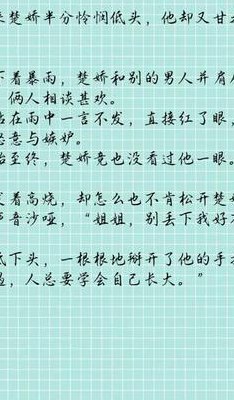 楚娇半分怜悯低头，他却又甘
下着暴雨，楚娇和别的男人并肩
俩人相谈甚欢。
在雨中一言不发，直接红了眼，
意与嫉妒。
至终，楚娇竟也没看过他一眼。
着高烧，却怎么也不肯松开楚
音沙哑，“姐姐，别丢下我好
下头，一根根地掰开了他的手
，人总要学会自己长大。”